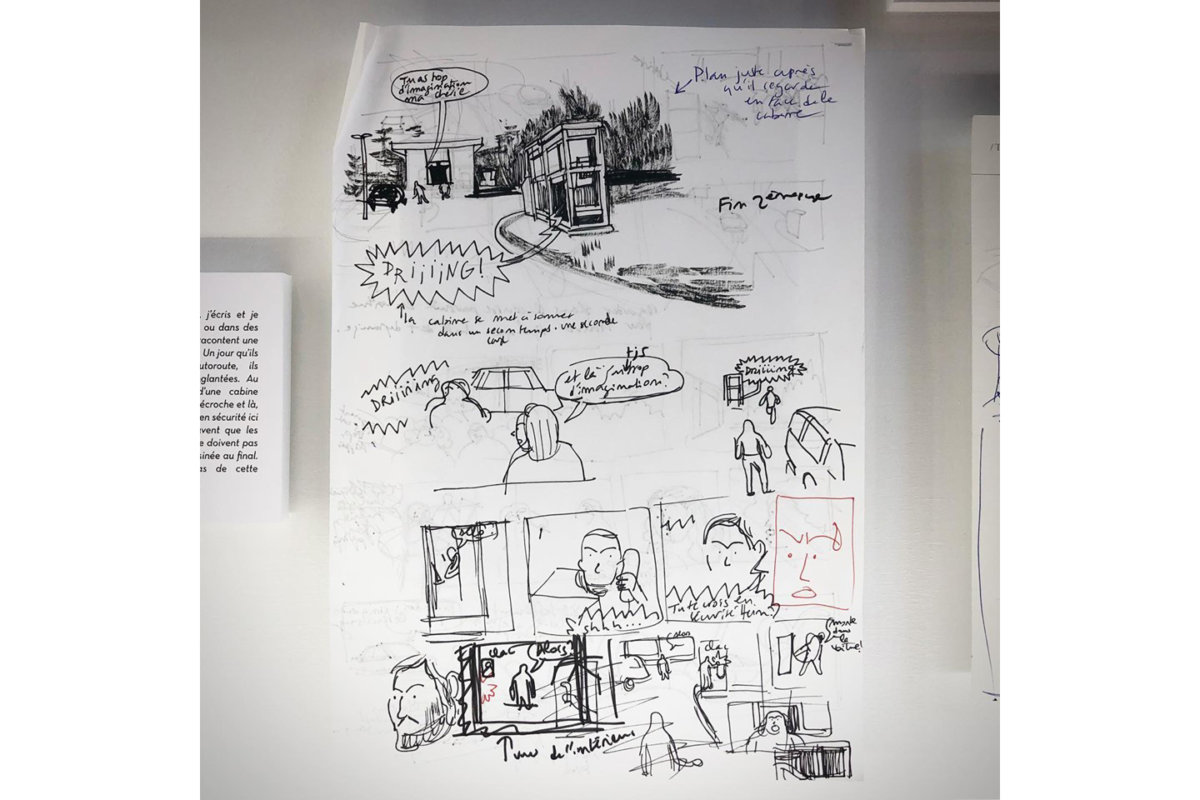 Tu as trop
d'imagination
ma chérie
Plan juste après
qu'il regarde
en face de la
cabine
Fin
DRIIIING!
la cabine se met à sonner
dans un second temps. une seconde
DRIIIING
tjs
et là j'ai trop
d'imagination?
DRIIIING
, j'écris et je
ou dans des
racontent une
Un jour qu'ils
utoroute, ils
glantées. Au
d'une cabine
écroche et là,
en sécurité ici
vent que les
e doivent pas
sinée au final.
as de cette
allo
!
shhh...
Tu te crois en
sécurité
clac
Alors?
Alors
clac
monte
dans
la
voiture!
vue de l'intérieur